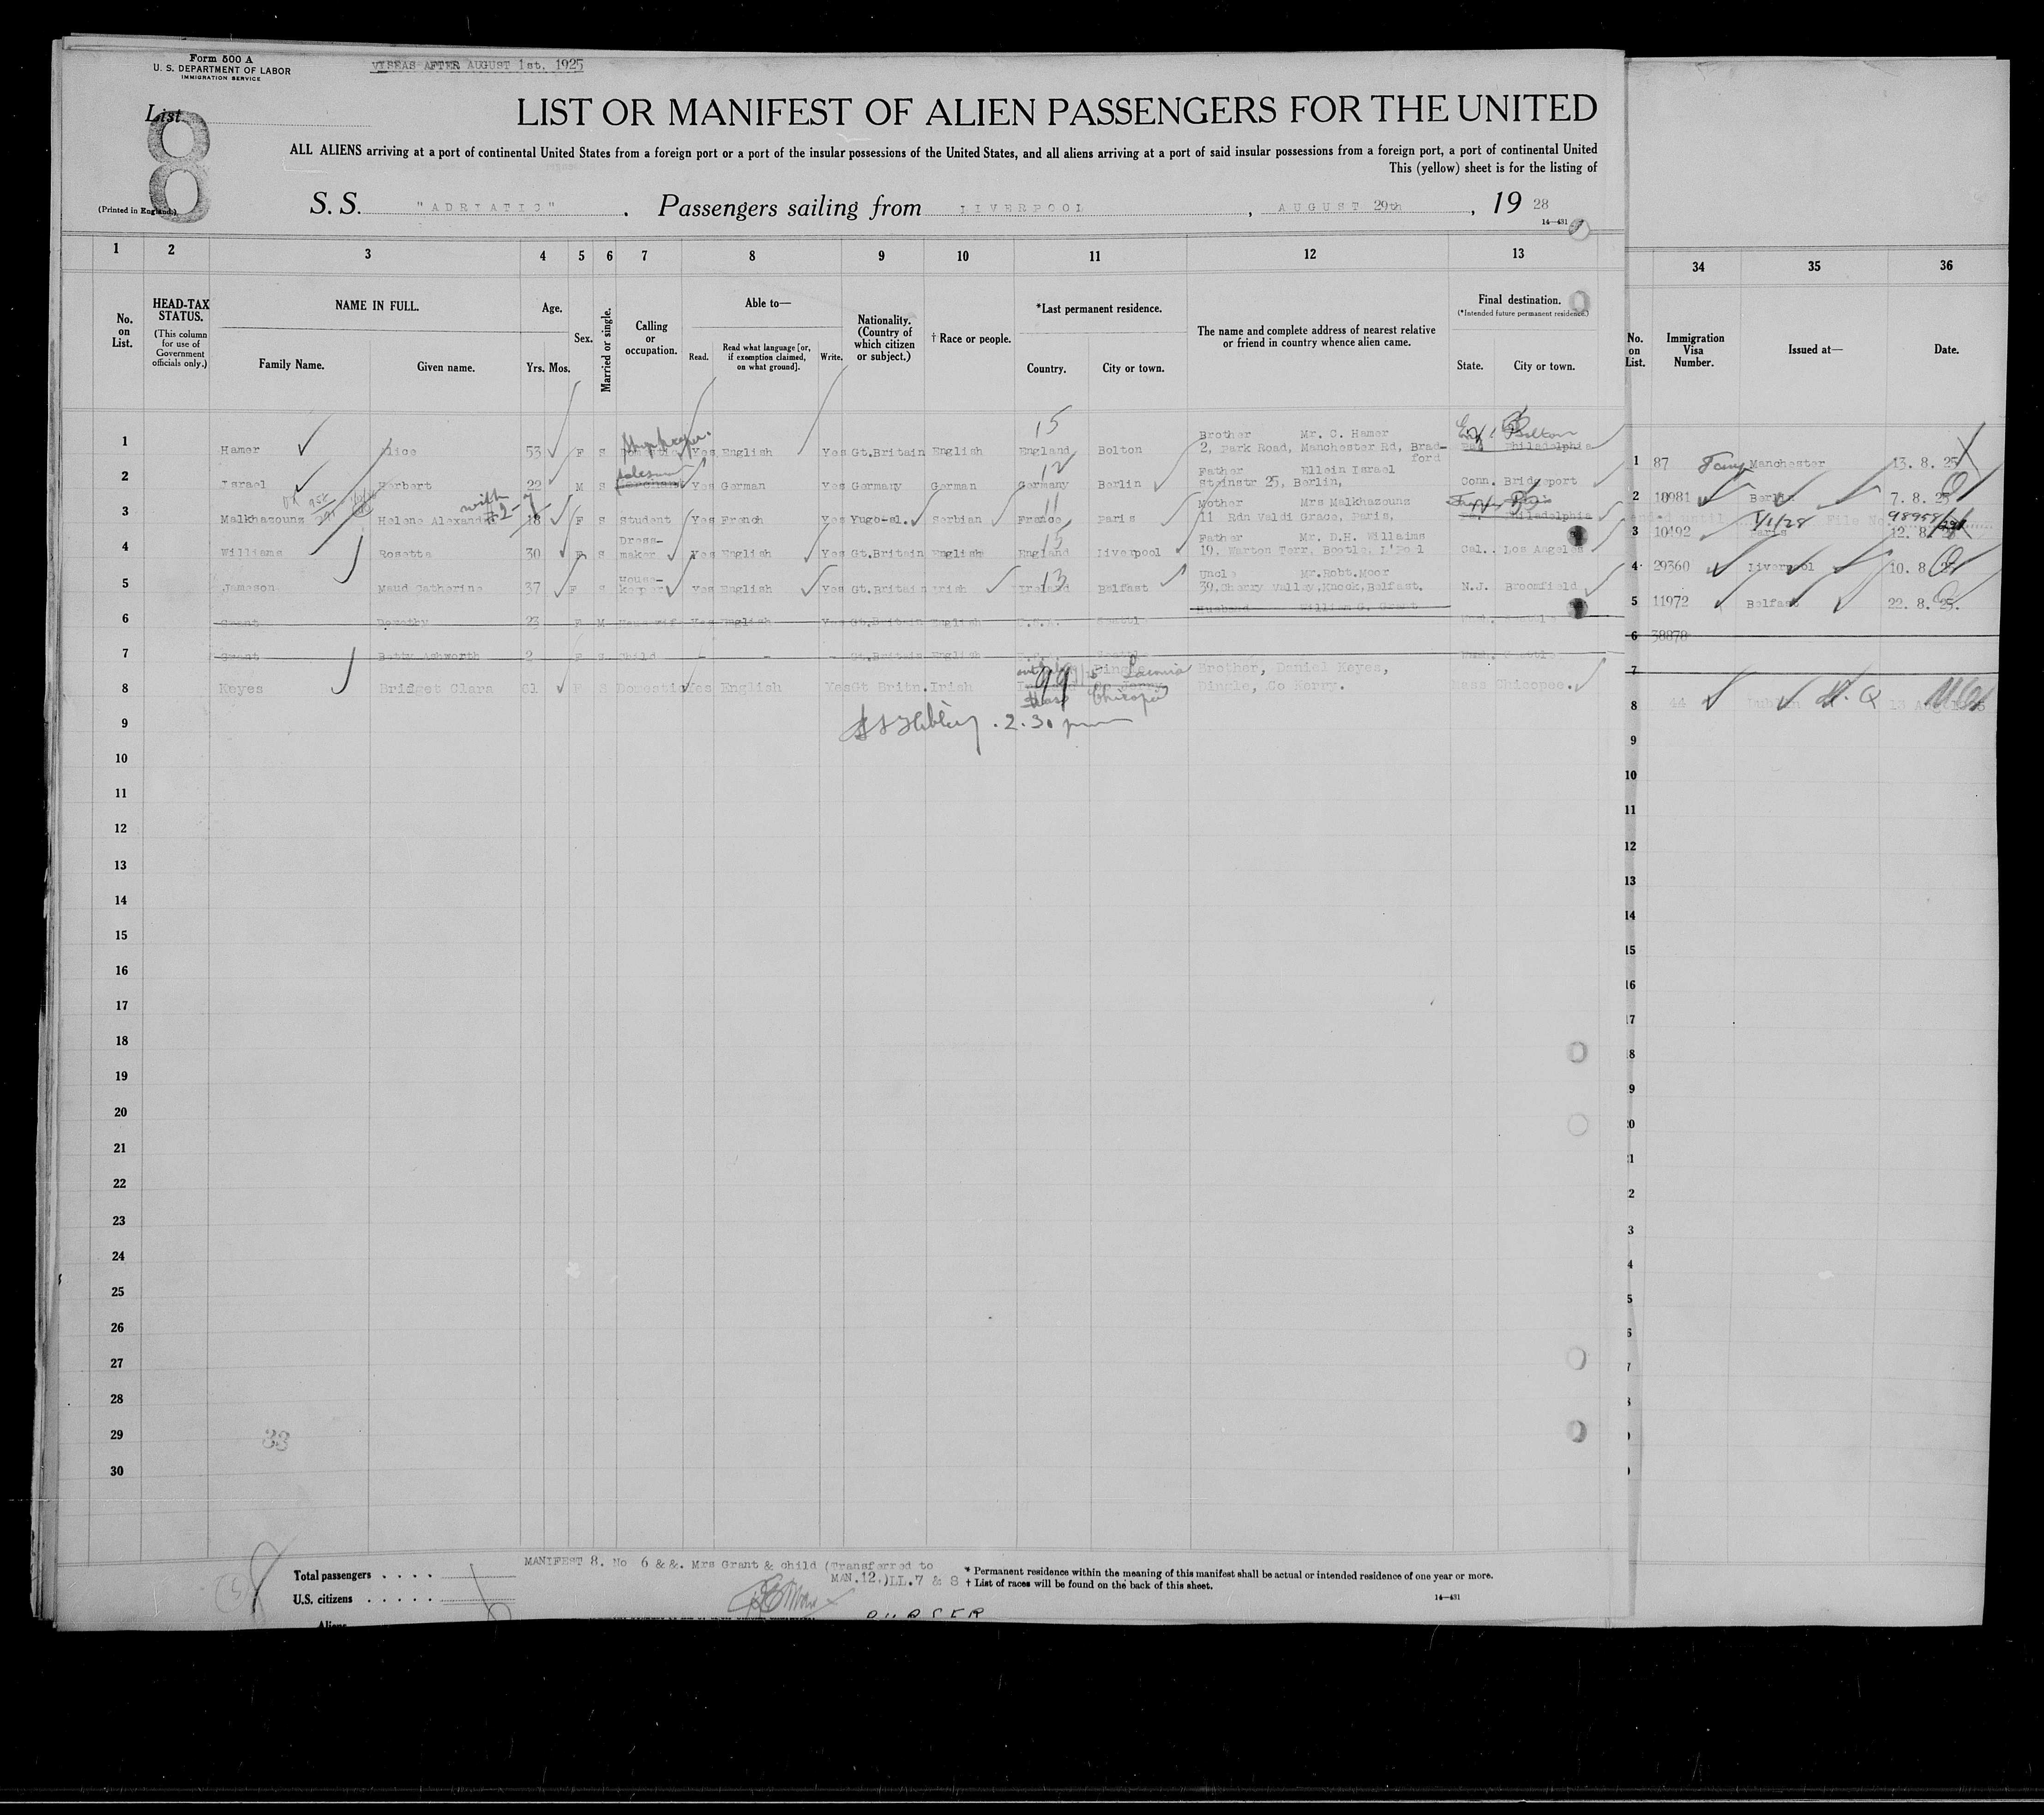 Form 500 A
U. S. DEPARTMENT OF LABOR
IMMIGRATION SERVICE
VISEAS AFTER AUGUST 1st, 1925
List
8
(Printed in England.)
LIST OR MANIFEST OF ALIEN PASSENGERS FOR THE UNITED
ALL ALIENS arriving at a port of continental United States from a foreign port or a port of the insular possessions of the United States, and all aliens arriving at a port of said insular possessions from a foreign port, a port of continental United
This (yellow) sheet is for the listing of
S. S. "ADRIATIC" . Passengers sailing from LIVERPOOL , AUGUST 29th , 19 28
14—431
1 2 3 4 5 6 7 8 9 10 11 12 13 34 35 36
No. on List.
HEAD-TAX STATUS.
(This column for use of Government officials only.)
NAME IN FULL.
Family Name. Given name.
Age.
Yrs. Mos.
Sex.
Married or single.
Calling or occupation.
Able to—
Read. Read what language [or, if exemption claimed, on what ground]. Write.
Nationality. (Country of which citizen or subject.)
† Race or people.
*Last permanent residence.
Country. City or town.
The name and complete address of nearest relative or friend in country whence alien came.
Final destination.
(*Intended future permanent residence.)
State. City or town.
No. on List.
Immigration Visa Number.
Issued at—
Date.
15 Bolton
1 Hamer Alice 53 F S Shopkeeper. Yes English Yes Gt.Britain English England Bolton Brother Mr. C. Hamer 2, Park Road, Manchester Rd, Bradford Philadelphia
1 87 Manchester 13. 8. 25
12
2 Israel Herbert 22 M S Salesman Yes German Yes Germany German Germany Berlin Father Ellein Israel Steinstr 25, Berlin, Conn. Bridgeport
2 10981 Berlin 7. 8.
with #2-
11
3 Malkhazounz Helene 18 F S Student Yes French Yes Yugo-sl. Serbian France Paris Mother Mrs Malkhazounz 11 Rdn Valdi Grace, Paris, Philadelphia
1/1/28 File No. 98958
3 10492 Paris 12. 8.
15
4 Williams Rosetta 30 F S Dress-maker Yes English Yes Gt.Britain English England Liverpool Father Mr. D.H. Willaims 19, Warton Terr, Bootle, L'Pool Cal. Los Angeles
4 29360 Liverpool 10. 8
13
5 Jameson Maud Catherine 37 F S House-keeper Yes English Yes Gt.Britain Irish Ireland Belfast Uncle Mr.Robt.Moor 39,Cherry Valley,Knock,Belfast. N.J. Broomfield
5 11972 Belfast 22. 8. 25.
6 Grant Dorothy 23 F M Housewife Yes English Yes Gt.Britain English U.S.A. Seattle Husband William G. Grant Wash. Seattle
6 38878
7 Grant Betty Ashworth 2 F S Child - - - Gt.Britain English U.S.A. Seattle Wash. Seattle
7
99
8 Keyes Bridget Clara F S Domestic Yes English Yes Gt Britn. Irish Dingle Brother, Daniel Keyes, Dingle, Co Kerry. Mass Chicopee.
Mass Chicopee
8 44 Dublin
2.30 pm
9
10
11
12
13
14
15
16
17
18
19
20
21
22
23
24
25
26
27
28
29
30
33
MANIFEST 8. No 6 & &. Mrs Grant & child (Transferred to
MAN.12.)LL.7 & 8
Total passengers . . . .
U.S. citizens . . . . .
Aliens
PURSER
* Permanent residence within the meaning of this manifest shall be actual or intended residence of one year or more.
† List of races will be found on the back of this sheet.
14—431